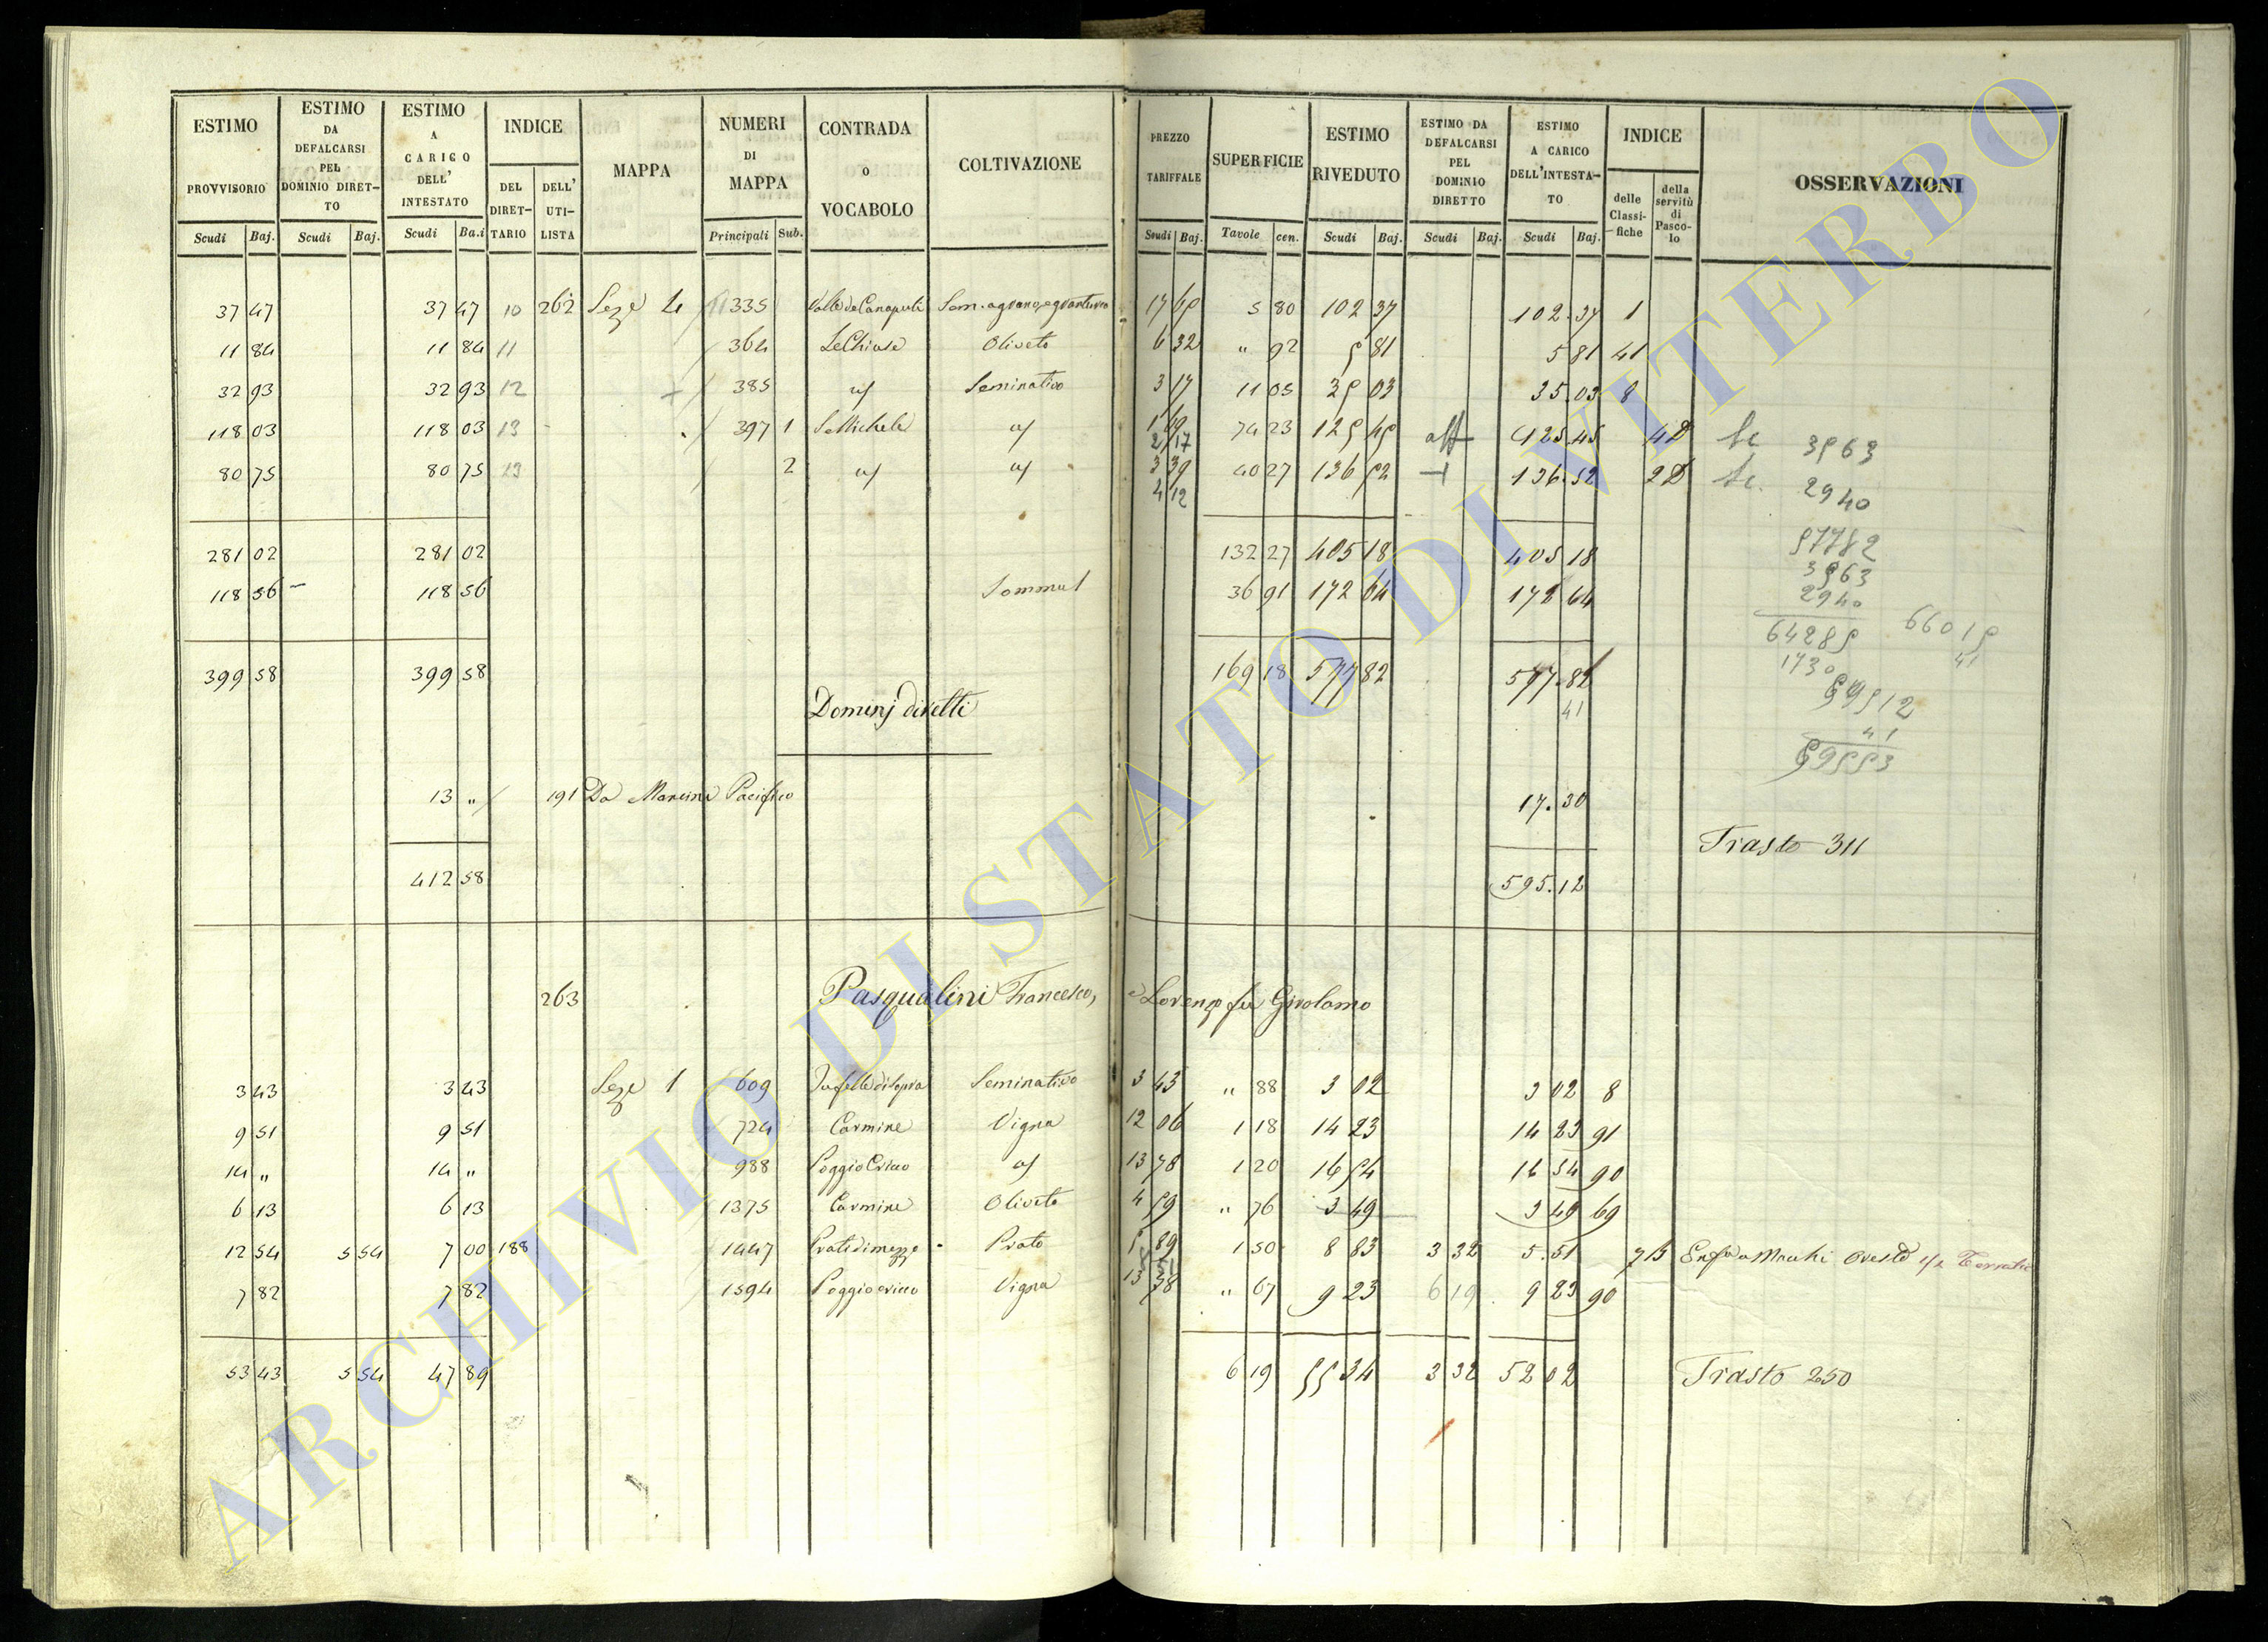 ESTIMO PROVVISORIO | ESTIMO DA DEFALCARSI PEL DOMINIO DIRETTO | ESTIMO A CARICO DELL' INTESTATO | INDICE | MAPPA | NUMERI DI MAPPA | CONTRADA O VOCABOLO | COLTIVAZIONE | PREZZO TARIFFALE | SUPERFICIE | ESTIMO RIVEDUTO | ESTIMO DA DEFALCARSI PEL DOMINIO DIRETTO | ESTIMO A CARICO DELL'INTESTATO | INDICE | OSSERVAZIONI
DEL DIRETTARIO | DELL' UTILISTA | delle Classifiche | della servitù di Pascolo
Scudi | Baj. | Scudi | Baj. | Scudi | Ba.i | Principali | Sub. | Scudi | Baj. | Tavole | cen. | Scudi | Baj. | Scudi | Baj. | Scudi | Baj.
37 47 | 37 47 | 10 | 262 | 335 | 5 80 | 102 37 | 102.37 | 1
11 84 | 11 84 | 11 | 364 | Le Chiuse | Oliveto | 6 32 | " 92 | 5 81 | 5 81 | 41
32 93 | 32 93 | 12 | 385 | Seminativo | 3 17 | 11 05 | 35 03 | 35.03 | 8
118 03 | 118 03 | 13 | 397 | 1 | S. Michele | 1 69 | 2 17 | 74 23 | 125 45 | 125.45 | 4D | 3563
80 75 | 80 75 | 13 | 2 | 3 39 | 4 12 | 40 27 | 136 52 | 136.52 | 2D | 2940
281 02 | 281 02 | 132 27 | 405 18 | 405 18 | 57782
3563
118 56 | 118 56 | 36 91 | 172 64 | 172 64 | 2940
64285 | 66015
41
399 58 | 399 58 | 169 18 | 577 82 | 577.82 | 1730
41
Dominj diretti | 59512
41
59553
13 " | 191 | Da Mancini Pacifico | 17.30
Trasto 311
412 58 | 595.12
263 | Pasqualini Francesco, e Lorenzo fu Girolamo
3 43 | 3 43 | 1 | 609 | Seminativo | 3 43 | " 88 | 3 02 | 3 02 | 8
9 51 | 9 51 | 724 | Carmine | Vigna | 12 06 | 1 18 | 14 23 | 14 23 | 91
14 " | 14 " | 988 | 13 78 | 1 20 | 16 54 | 16 54 | 90
6 13 | 6 13 | 1375 | Carmine | Oliveto | 4 59 | " 76 | 3 49 | 3 49 | 69
12 54 | 5 54 | 7 00 | 188 | 1447 | Prato | 5 89 | 1 50 | 8 83 | 3 32 | 5.51
7 82 | 7 82 | 1594 | Vigna | 13 78 | " 67 | 9 23 | 6 19 | 9 23 | 90
53 43 | 5 54 | 47 89 | 6 19 | 55 34 | 3 32 | 52 02 | Trasto 250
ARCHIVIO DI STATO DI VITERBO